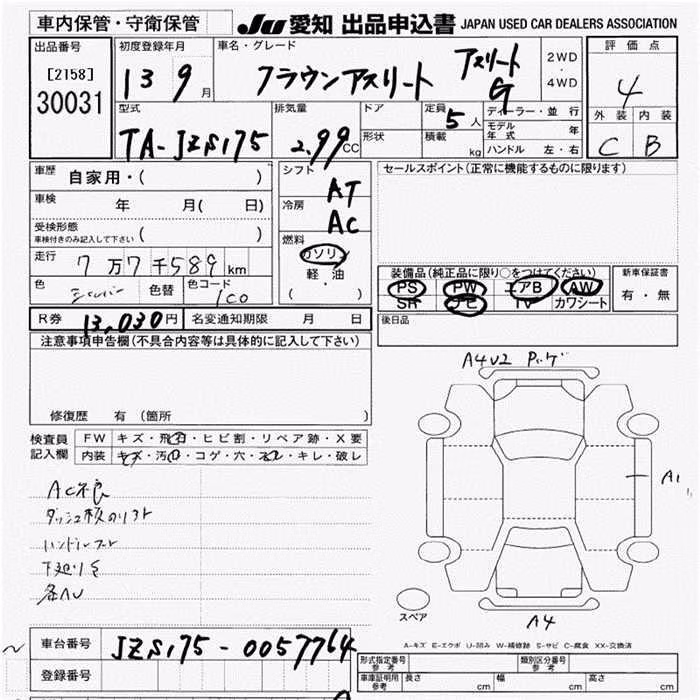 車内保管・守衛保管
JU 愛知 出品申込書 JAPAN USED CAR DEALERS ASSOCIATION
出品番号
[2158]
30031
初度登録年月
13 9月
車名・グレード
クラウンアスリート アスリートG
2WD・4WD
評価点
4
外装 内装
C B
型式
TA-JZS175
排気量
2.99 CC
ドア
形状
定員
5人
積載
kg
ディーラー・並行
モデル年式 年
ハンドル 左・右
車歴 自家用・( )
車検 年 月( 日)
受検形態
車検付きのみ記入して下さい ( )
走行 7万7千589km
色 シルバー 色替 色コード 1C0
シフト
AT
冷房
AC
燃料
ガソリン
軽・油
( ・ )
セールスポイント(正常に機能するものに限ります)
装備品(純正品に限り○をつけてください)
PS PW エアB AW
SR ナビ TV カワシート
新車保証書
有・無
R券 13,030円 名変通知期限 月 日
後日品
注意事項申告欄(不具合内容等は具体的に記入して下さい)
修復歴 有 (箇所 )
検査員記入欄
FW キズ・飛石・ヒビ割・リペア跡・X要
内装 キズ・汚レ・コゲ・穴・スレ・キレ・破レ
AC不良
ハンドルスレ
下廻りS
各AU
A1
スペア
A4
A-キズ E-エクボ U-凹み W-補修跡 S-サビ C-腐食 XX-交換済
車台番号 JZS175-0057764
登録番号
形式指定番号 参考
類別区分番号 参考
車庫証明用 参考 長さ cm 幅 cm 高さ cm